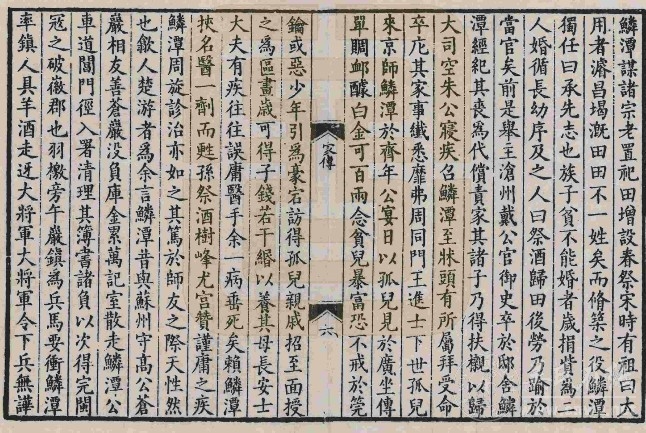 鱗潭謀諸宗老置祀田增設春祭宋時有祖曰大
用者濬昌堨溉田田不一姓矣而脩築之役鱗潭
獨任曰承先志也族子貧不能婚者歲捐貲為二
人婚循長幼序及之人曰祭酒歸田後勞乃踰於
當官矣前是舉主滄州戴公官御史卒於邸舍鱗
潭經紀其喪為代償責家其諸子乃得扶櫬以歸
大司空朱公寢疾召鱗潭至牀頭有所屬拜受命
卒庀其家事纖悉靡弗周同門王進士下世孤兒
來京師鱗潭於齊年公宴日以孤兒見於廣坐傳
單賙卹醵白金可百兩念貧兒暴富恐不戒於筦
家傳
六
鑰或惡少年引為豪宕訪得孤兒親戚招至面授
之為區畫歲可得子錢若干緡以養其母長安士
大夫有疾往往誤庸醫手余一病垂死矣賴鱗潭
挾名醫一劑而甦孫祭酒樹峰尤宮贊謹庸之疾
鱗潭周旋診治亦如之其篤於師友之際天性然
也歙人楚游者為余言鱗潭昔與蘇州守高公蒼
嚴相友善蒼嚴沒負庫金累萬記室散走鱗潭公
車道閶門徑入署清理其簿書諸負以次得完閩
冦之破徽郡也羽檄旁午嚴鎮為兵馬要衝鱗潭
率鎮人具羊酒走迓大將軍大將軍令下兵無譁